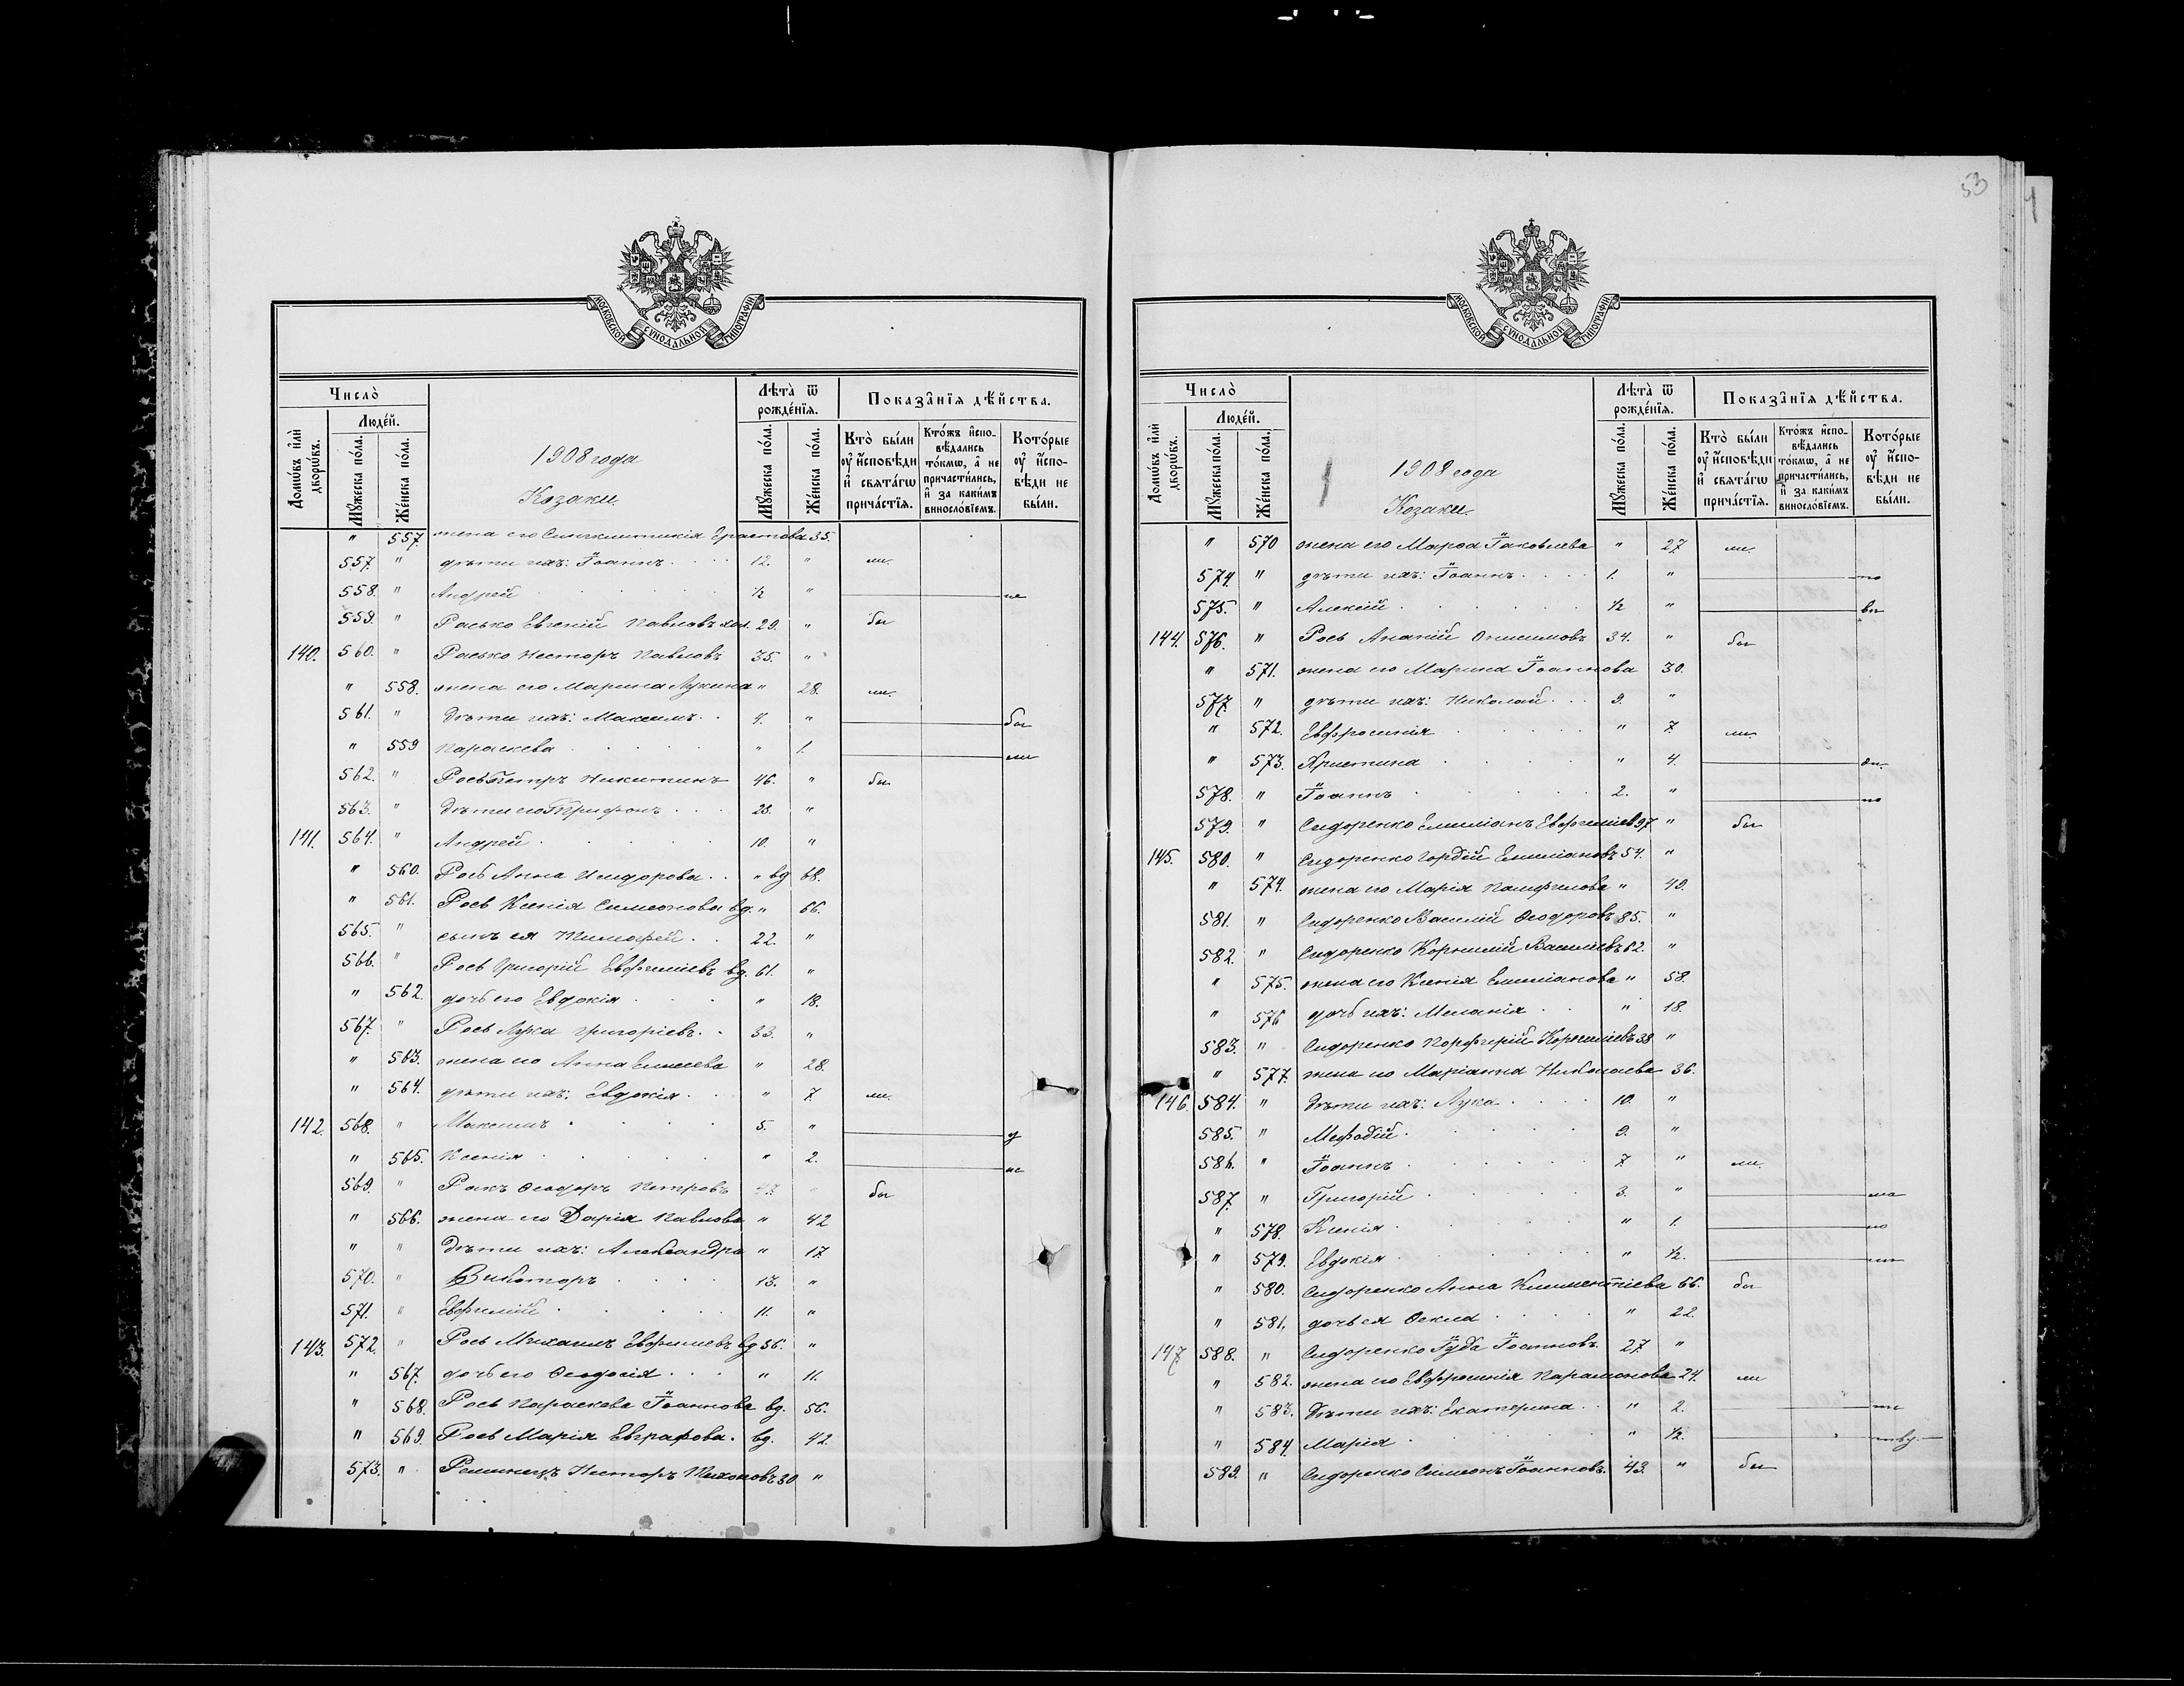 53
МОСКОВСКОЙ СѴНОДАЛЬНОЙ ТИПОГРАФІИ
Число̀
Людéй.
Домѡ́въ и҆лѝ дворѡ́въ.
Мꙋ́жеска по́ла.
Же́нска по́ла.
1908 года
Козаки
Лѣта̀ ѿ рожде́нїѧ.
Мꙋ́жеска по́ла.
Же́нска по́ла.
Показа̑нїѧ дѣ́йства.
Кто̀ бы́ли оу҆ и҆́сповѣди и҆ свѧта́гѡ прича́стїѧ.
Кто́жъ и҆спо- вѣ́дались то́кмѡ, а҆ не причасти́лись, и҆ за каки́мъ виносло́вїемъ.
Кото́рые оу҆ и҆́спо- вѣди не бы́ли.
" 557. жена его Синклитикія Ерастова 35.
557. " дѣти ихъ: Іоаннъ 12. " ли.
558. " Андрей ½ " не
559. " Расько Евгеній Павловъ хол. 29. " бы
140. 560. " Расько Несторъ Павловъ 35. "
" 558. жена его Марина Лукина " 28. ли.
561. " Дѣти ихъ: Максимъ 4. " бы
" 559 Параскева " 1. ли
562. " Рось Петръ Никитинъ 46. " бы
563. " Дѣти его Трифонъ 28. "
141. 564. " Андрей 10. "
" 560. Рось Анна Исидорова " вд 68.
" 561. Рось Ксенія Симеонова вд. " 66.
565. " сынъ ея Тимофей 22. "
566. " Рось Григорій Евфиміевъ вд. 61. "
" 562. дочь его Евдокія " 18.
567. " Рось Лука Григоріевъ 33. "
" 563. жена его Анна Елисеева " 28.
" 564. дѣти ихъ: Евдокія " 7. ли.
142. 568. " Максимъ 5. "
" 565. Ксенія " 2.
569. " Ракъ Ѳеодоръ Петровъ бы
" 566. жена его Дарія Павлова " 42
" " Дѣти ихъ: Александра " 17.
570. " Викторъ 13. "
571. " Евфимій 11. "
143. 572. " Рось Михаилъ Евфиміевъ вд 56. "
" 567. дочь его Ѳеодосія " 11.
" 568. Рось Параскева Іоаннова вд. 56.
" 569. Рось Марія Евграфова. вд. 42.
573. " Несторъ Тихоновъ 30 "
МОСКОВСКОЙ СѴНОДАЛЬНОЙ ТИПОГРАФІИ
Число̀
Людéй.
Домѡ́въ и҆лѝ дворѡ́въ.
Мꙋ́жеска по́ла.
Же́нска по́ла.
1908 года
Козаки.
Лѣта̀ ѿ рожде́нїѧ.
Мꙋ́жеска по́ла.
Же́нска по́ла.
Показа̑нїѧ дѣ́йства.
Кто̀ бы́ли оу҆ и҆́сповѣди и҆ свѧта́гѡ прича́стїѧ.
Кто́жъ и҆спо- вѣ́дались то́кмѡ, а҆ не причасти́лись, и҆ за каки́мъ виносло́вїемъ.
Кото́рые оу҆ и҆́спо- вѣди не бы́ли.
" 570 жена его Марѳа Іаковлева " 27 ли.
574. " дѣти ихъ: Іоаннъ 1. " по
575. " Алексій ½ "
144. 576. " Рось Ананій Онисимовъ 34. " бы
" 571. жена его Марина Іоаннова 30.
577. " дѣти ихъ: Николай 9. "
" 572. Евфросинія " 7. ли.
" 573. Христина " 4.
578. " Іоаннъ 2. " по
579. " Сидоренко Емиліанъ Евфиміев 97 " бы
145. 580. " Сидоренко Гордій Емиліановъ 54. "
" 574. жена его Марія Памфилова " 49.
581. " Сидоренко Василій Ѳеодоровъ 85. "
582. " Сидоренко Корнилій Васильевъ 62. "
" 575. жена его Ксенія Емиліанова " 58.
" 576 дочь ихъ: Меланія " 18.
583. " Сидоренко Порфирій Корниліевъ 38 "
" 577. жена его Маріанна Николаева 36.
146. 584. " Дѣти ихъ: Лука 10. "
585. " Меѳодій 9. "
586. " Іоаннъ 7. " ли.
587. " Григорій 3. " ма
" 578. Ксенія " 1. ло
" 579. Евдокія " ½.
" 580. Сидоренко Анна Климентіева 66. бы
" 581. дочь ея Ѳекла " 22.
147 588. " Сидоренко Іуда Іоанновъ. 27. "
" 582. жена его Евфросинія Парамонова 24. ли
" 583. Дѣти ихъ: Екатерина " 2.
" 584. Марія " ½.
589. " Сидоренко Симеонъ Іоанновъ. 43. " бы